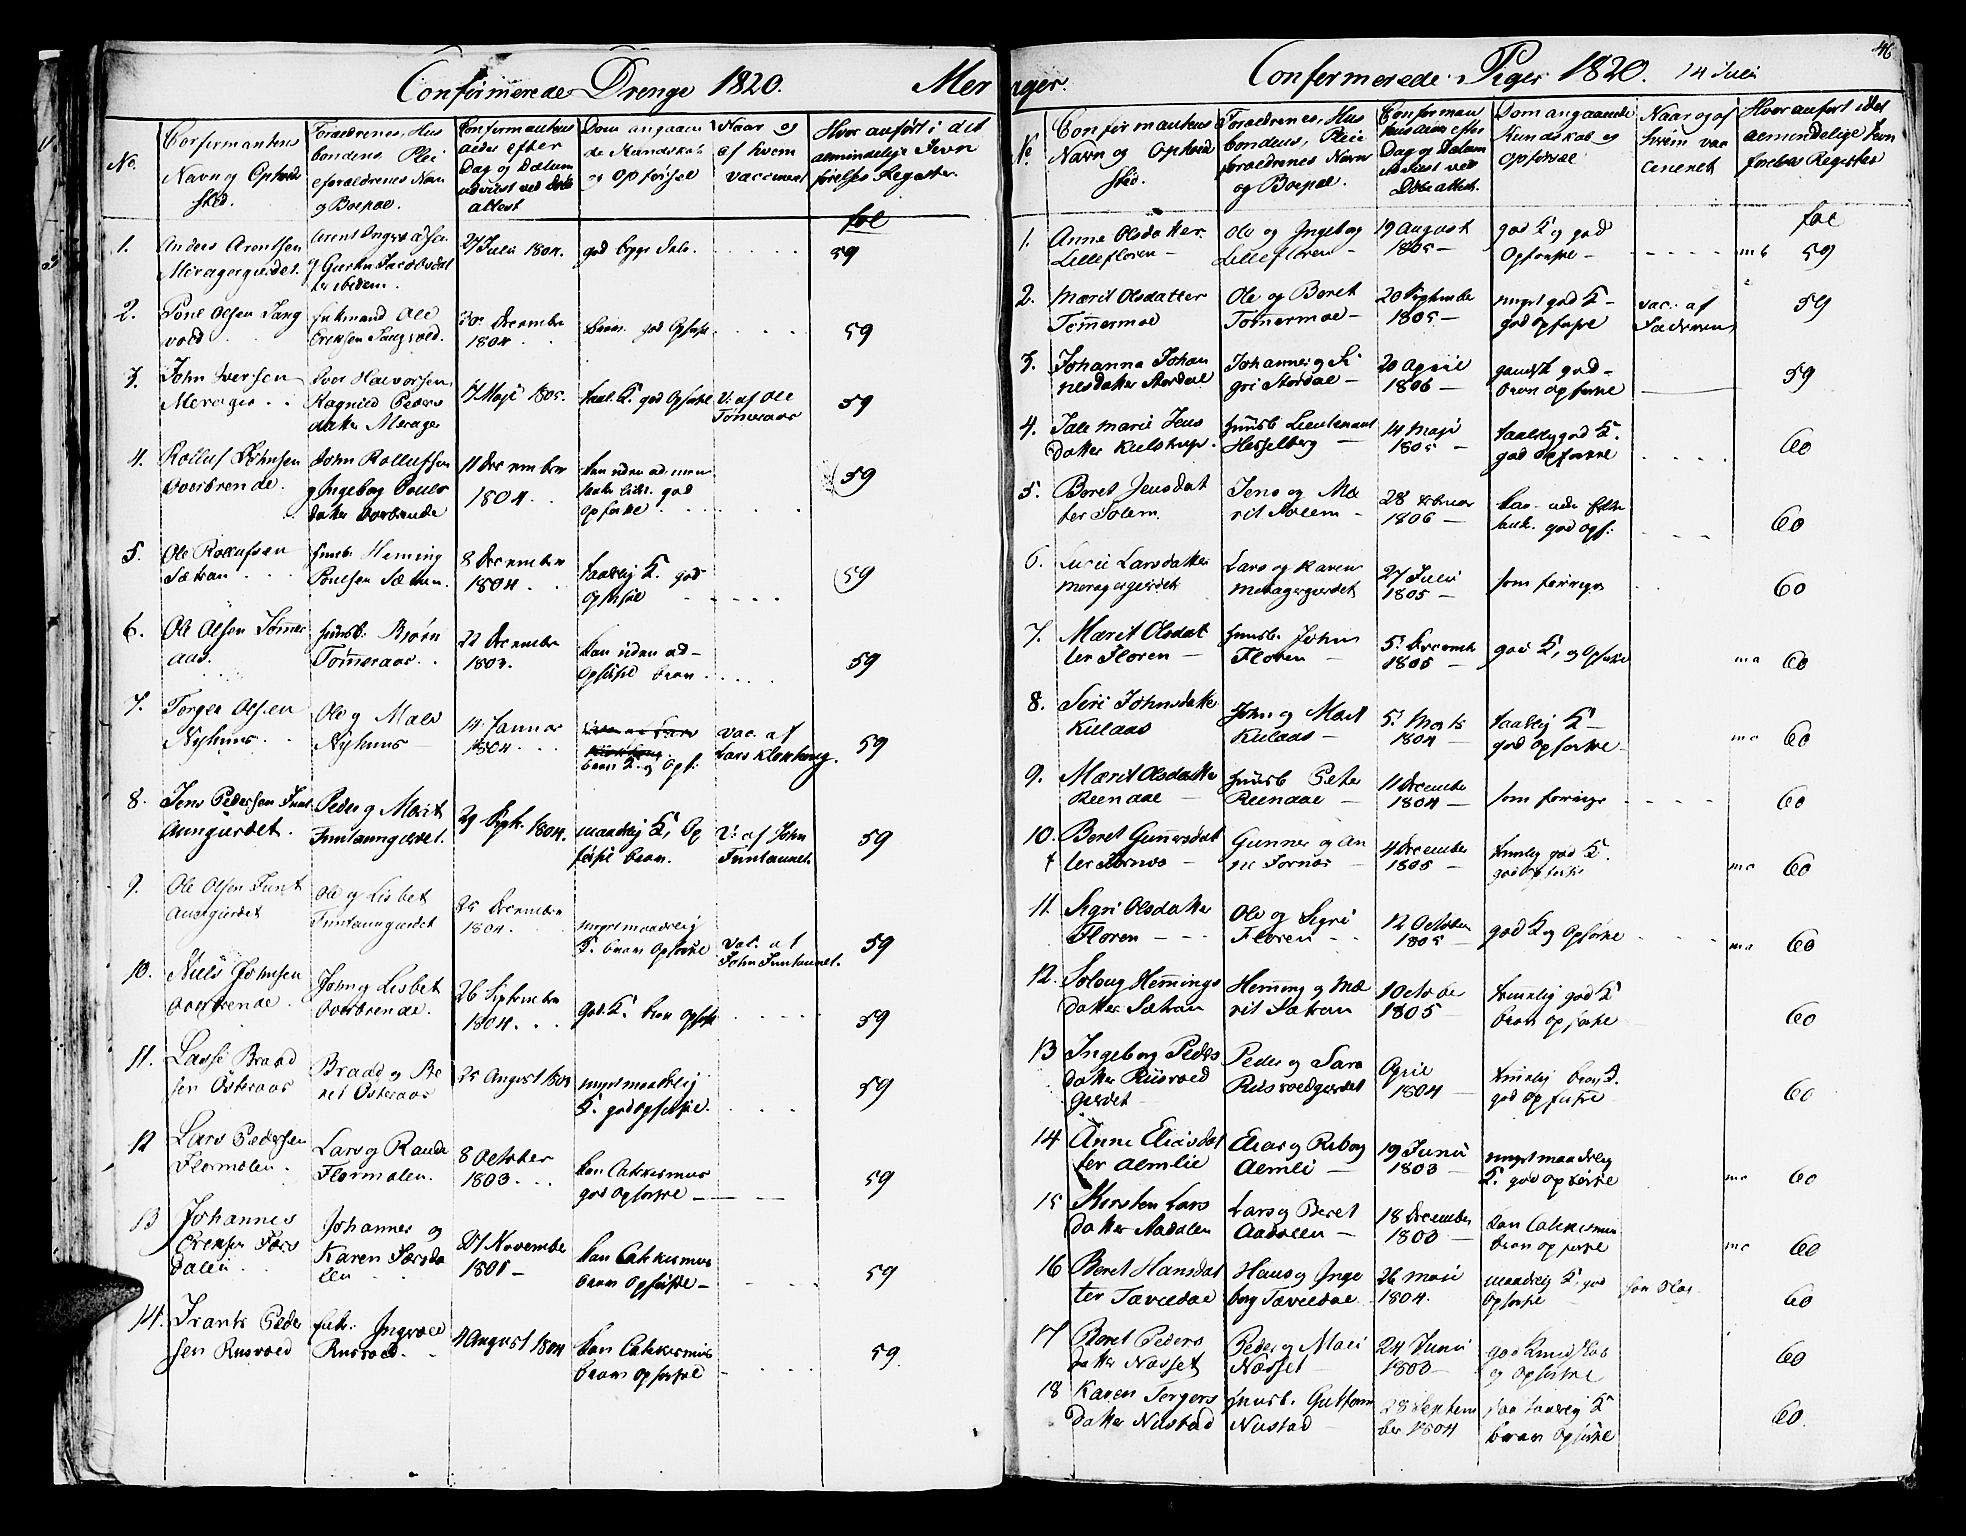 Confirmerede Drenge 1820. Mer
No.
Confirmantens
Navn og Opholds
sted.
Foraeldrenes, Hus
bondens Plei
eforaeldrenes Navn
og Boepæl.
Confirmantens
alder efter
Dag og Datum
udviist ved Døbe
attest
Dom angaaen
de Kundskab
og Opførsel
Naar og
af hvem
vaccineret
Hvor anført i det
almindelige Jevn
førelses Register
fol
1. Anders Arentsen
Meragergiærdet.
Arent Ingebrigtsen
og Guru Jacobsdat
ter ibidem.
27 Julii 1804.
god
59
2. Poul Olsen Lang
vold
Enkemand Ole
Erichsen Langvold.
30 December
1804
god Opførsel
59
3. John Iversen
Merager
Iver Halvorsen
Ragnild Peders
datter Merager
17 Maji 1805.
taal. K. god Opførsel
V: af Ole
Tømeraas
59
4. Rolluf Johnsen
Overbrende.
John Rollufsen
og Ingeborg Pouls
datter Overbrende
11 December
1804
kan uden ad
god
Opførsel
59
5. Ole Rollufsen
Sætran
huusb. Heming
Poulsen Sætran.
8 December
1804
taalelig K. god
Opførsel
59
6. Ole Olsen Tømer
aas.
huusb. Bjørn
Tømeraas.
22 December
1803.
kan uden ad-
Opførsel brav.
59
7. Torger Olsen
Nyhuus
Ole og Malv
Nyhuus
14 Januar
1804
brav K. og Opf.
vac. af
Lars Kløkhaug.
59
8. Jens Pedersen Funt
aungiærdet.
Peder og Marit
Funtaungiærdet.
29 Sept. 1804.
maadelig K, Op
førsel brav.
V: af John
Funtaunet.
59
9. Ole Olsen Funt
aungiærdet
Ole og Lisbet
Funtaungiærdet
25 December
1804.
meget maadelig
K. brav Opførsel
vac. af
John Funtaunet.
59
10. Niels Johnsen
Overbrende.
John og Lisbet
Overbrende.
26 September
1804.
god K. brav Opførsel
59
11. Lasse Braad
sen Østeraas
Braad og Be
ret Østeraas
25 August
meget maadelig
K. god opførsel.
59
12 Lars Pedersen
Flormolen.
Lars og Rande
Flormolen.
8 October
1803.
kan Catkismus
god Opførsel
59
13 Johannes
Erensen Færs
dalen
Johannes og
Karen Færsda
len
27 November
1801
kan Catkismus
brav Opførsel
59
14. Frants Peder
sen Rusvold
Ingvald
Rusvold.
4 August 1804
kan Catkismus
brav Opførsel
59.
46
ager. Confirmerede Piger 1820. 14 Juli
No
Confirmantens
Navn og Ophold
sted.
Foraeldrenes, Hus
bondens, Pleie
foraeldrenes Navn
og Boepæl.
Confirman
tens alder efter
Dag og Datum
udviist ved
Døbeattest.
Dom angaaende
Kundskab og
Opførsel
Naar og af
hvem vac
cineret
Hvor anført i det
almindelige Jevn
førelses Register
fol
1. Anne Olsdatter
Lillefloren
Ole og Ingeborg
Lillefloren
19 August
1805
god K og god
Opførsel
59
2. Marit Olsdatter
Tømermoe
Ole og Beret
Tømermoe
20 September
1805
meget god K
god opførsel
vac. af
59
3. Johanna Johan
nesdatter Stordal
Johannes og Si
gri Stordal
20 April
1806
gandske god
brav opførsel
59
4. Jale Marie Jens
datter Kulstrup.
huusb Lieutenant
Hesselberg
14 Maji
1805
taalelig god K.
god opførsel
60
5. Beret Jensdat
ter Solem.
Jens og Mæ
rit Solem
28 Februar
1806
god opf:
60
6. Lusie Larsdatter
Meragergierdet
Lars og Karen
Meragergierdet
27 Julii
1805
som forrige
60
7. Mærit Olsdat
ter Floren
huusb. John
Floren
5 December
1805
god K, og Opførsel
60
8. Siri Johnsdatter
Kulaas
John og Marit
Kulaas
5 Marts
1804
taalelig K
god Opførsel
60
9. Mærit Olsdatter
Reenaae
huusb Peter
Reenaae
11 December
1804
som forrige
60
10. Beret Gunersdat
ter Fornes
Gunner og An
ne Fornes
4 December
1805
temelig god K.
god opførsel
60
11. Sigri Olsdatter
Floren
Ole og Sigri
Floren
12 October
1805
god K og Opførsel
60
12. Solvug Hemings
datter Sætran
Heming og Mæ
rit Sætran
1 October
1805
temelig god K
brav opførsel
60
13 Ingeborg Peders
datter Rusvold
gierdet
Peder og Sara
Rusvoldgierdet
April
1804
temelig brav K.
god opførsel
60
14 Anne Eliasdat
ter Almlie
Elias og Rebog
Almli
19 Junii
1803
meget maadelig
K. god opførsel
60
15 Kirsten Lars
datter Aadalen
Lars og Beret
Aadalen
18 December
1803
kan Catkismus
brav opførsel
60
16 Beret Hansdat
ter Tævledal
Hans og Inge
borg Tævledal
26 Maji
1804.
maadelig K, god
opførsel
60
17 Beret Peders
datter Næsset
Peder og Mali
Næsset
24 Junii
1803
god Kundskab
og opførsel
60
18 Karen Torgers
datter Nustad
huusb. Guttorm
Nustad
28 Septem
ber 1804
taalelig K
brav Opførsel
60.